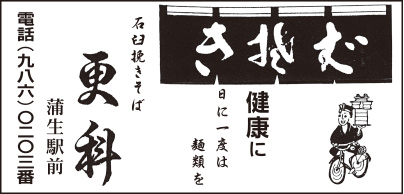 きそば
健康に
日に一度は
麺類を
石臼挽きそば
更科
蒲生駅前
電話(九八六)〇二〇三番